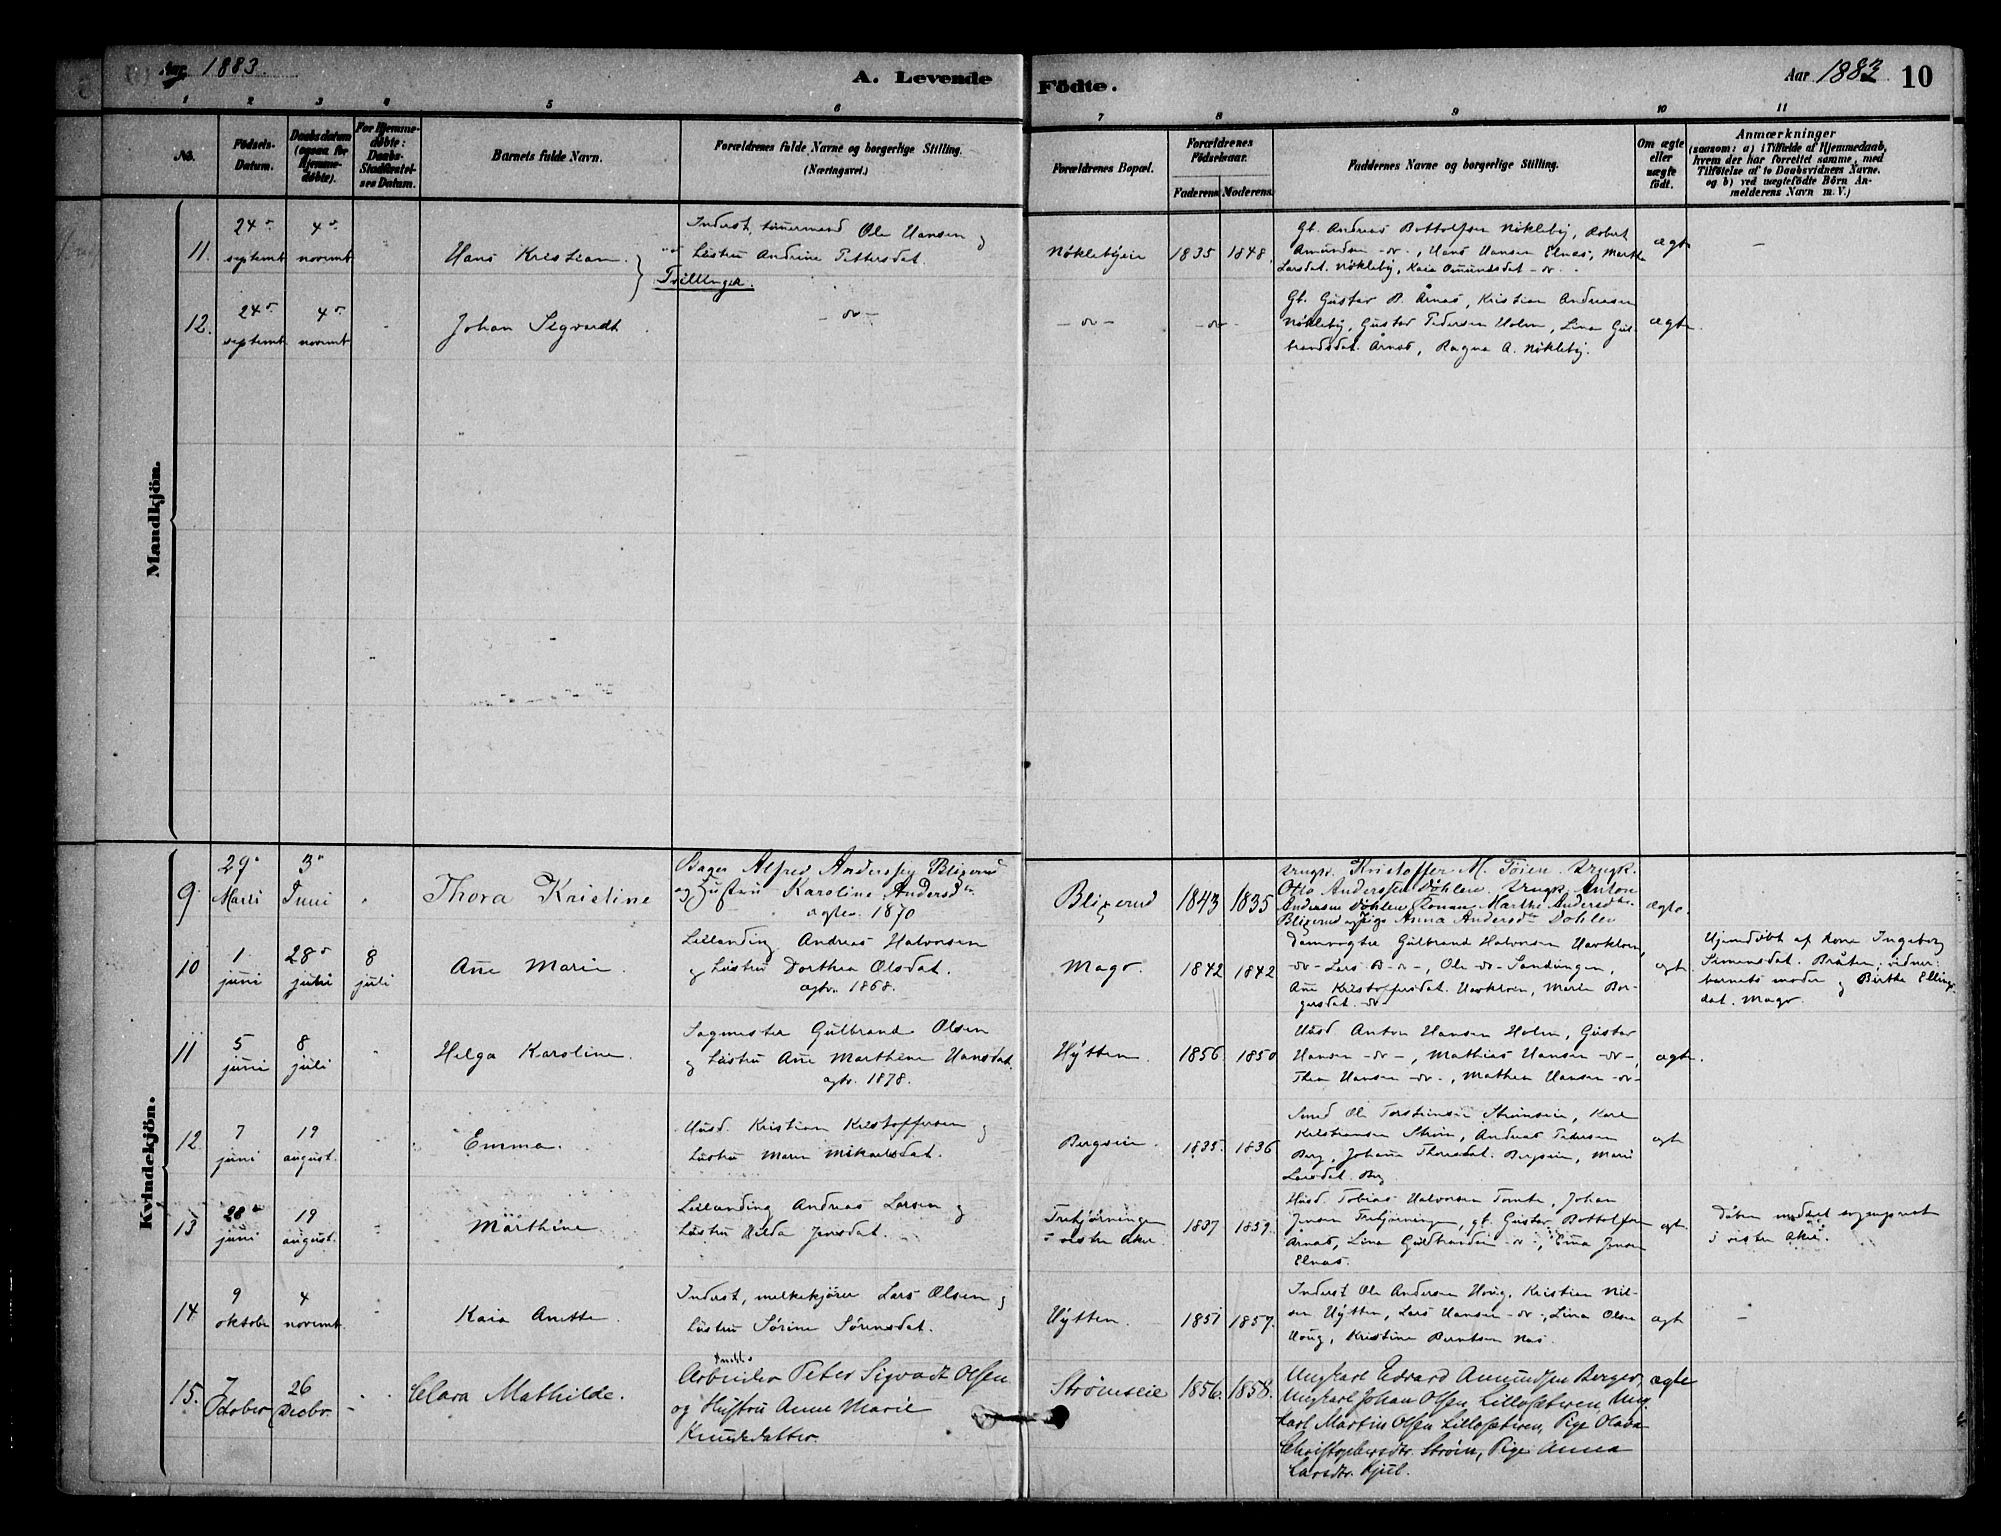 Aar 1883.
A. Levende
Födte.
Aar 1883
10
1 2 3 4 5 6 7 8 9 10 11
No.
Födsels-
Datum.
Daabsdatum
(ogsaa for
Hjemme-
døbte).
For Hjemme-
døbte:
Daabs-
Stadfæstel-
ses Datum.
Barnets fulde Navn.
Forældrenes fulde Navne og borgerlige Stilling.
(Næringsvei.)
Forældrenes Bopæl.
Forældrenes
Födselsaar.
Faderens. Moderens.
Faddernes Navne og borgerlige Stilling.
Om ægte
eller
uægte
födt.
Anmærkninger
(saasom: a) i Tilfælde af Hjemmedaab,
hvem der har forrettet samme, med
Tilföielse af to Daabsvidners Navne.
og b) ved uægtefödte Börn An-
melderens Navn m. V.)
Mandkjön.
11.
24
septemb
4
novemb
Hans Kristian.
Inderst, tömermand Ole Hansen og
Hustru Andrine Pettersdat.
Tvillinger.
Nöklebyeie
1835
1848.
Gb. Andreas Bottolfsen Nökleby, Robert
Amundsen -do-, Hans Hansen Elnæs, Marthe
Larsdat. Nökleby, Kaia Omundsdat -do-.
ægte
-
12.
24
septemb
4
novemb
Johan Sigvardt
-do-
-do-
-do-
Gb. Gustav B. Årnæs, Kristian Andreasen
Nökleby, Gustav Pedersen Holm, Lina Gul-
brandsdat. Årnæs, Ragna A. Nökleby.
ægte
Kvindekjön.
9
29
Marts
3
Juni
Thora Kristine
Bager Alfred Andersen Blixerud
og Hustru Karoline Andersdtr
ægtev. 1870
Blixerud
1843
1835
Ungk. Kristoffer M. Töien. Ungk.
Otto Andersen Döhlen. Ungk. Anton
Andersen Döhlen, Konen Marthe Andersdtr.
Blixerud og Pige Anna Andersdtr Döhlen
ægte.
10
1
juni
28
juli
8
juli
Ane Marie.
Leilænding Andreas Halvorsen
og Hustru Dorthea Olsdat.
ægtv. 1868.
Magv.
1842
1842
Gulbrand Halvorsen
-do- Lars B -do-, Ole -do- Sandungen,
Ane Kristoffersdat. Marie Bor-
gersdat. -do-
ægte
Hjemdöbt af kone Ingeborg
Simensdat. Bråten; vidner:
barnets moder og Birthe Ellings-
dat. Magv.
11
5
juni
8
juli
Helga Karoline.
Sagmester Gulbrand Olsen
og Hustru Ane Marthine Hansdat.
ægtv. 1878.
Hytten.
1856
1850
Husd. Anton Hansen Holm, Gustav
Hansen -do-, Mathias Hansen -do-,
Thea Hansen -do-, Mathea Hansen -do-
ægte
12.
7
juni
19
august.
Emma.
Husd. Kristian Kristoffersen og
Hustru Maren Mikaelsdat.
Bergseie.
1835.
1836
Smed Ole Torstensen Strömseie, Karl
Kristiansen Ström, Andreas Pedersen
Berg, Johanne Thoresdat. Bergseie, Marie
Larsdat. Berg
ægte
13
28
juni
19
august.
Marthine.
Leilænding Andreas Larsen og
Hustru Hilda Jensdat.
Trehjörningen
i vestre Aker
1837
1859.
Husd. Tobias Halvorsen Tomte, Johan
Jensen Trehjörningen, gb. Gustav Bottolfsen
Årnæs, Lina Gulbrandsen -do-, Emma Jensen
Elnæs.
ægte.
Dåben meldtet sogneprest
i vestre Aker.
14
9
oktober
4
novemb.
Kaia Anette
Inderst, melkekjörer Lars Olsen og
Hustru Sörine Sörensdat.
Hytten.
1851
1857.
Inderst Ole Andersen Houg, Kristian Nil-
sen Hytten, Lars Hansen -do-, Lina Olsen
Houg, Kristine Berntsen Næs.
ægte
-
15.
7
October
26
Decbr.
Clara Mathilde.
Arbeider Peter Sigvart Olsen
og Hustru Anne Marie
Knudsdatter.
Strömseie
1856.
1858.
Ungkarl Edvard Amundsen Berger,
Ungkarl Johan Olsen Lillosæteren, Ung-
karl Martin Olsen Lillosæteren, Pige Olava
Christophersdtr. Ström, Pige Anna
Larsdtr. Kjul.
ægte